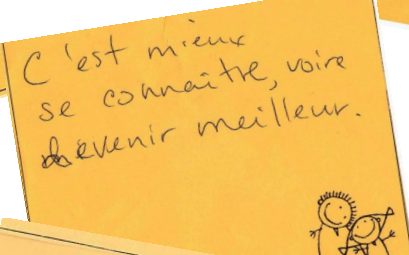 C'est mieux
se connaître, voire
devenir meilleur.